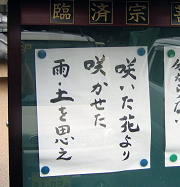 臨済宗
咲いた花より
咲かせた
雨土を思え